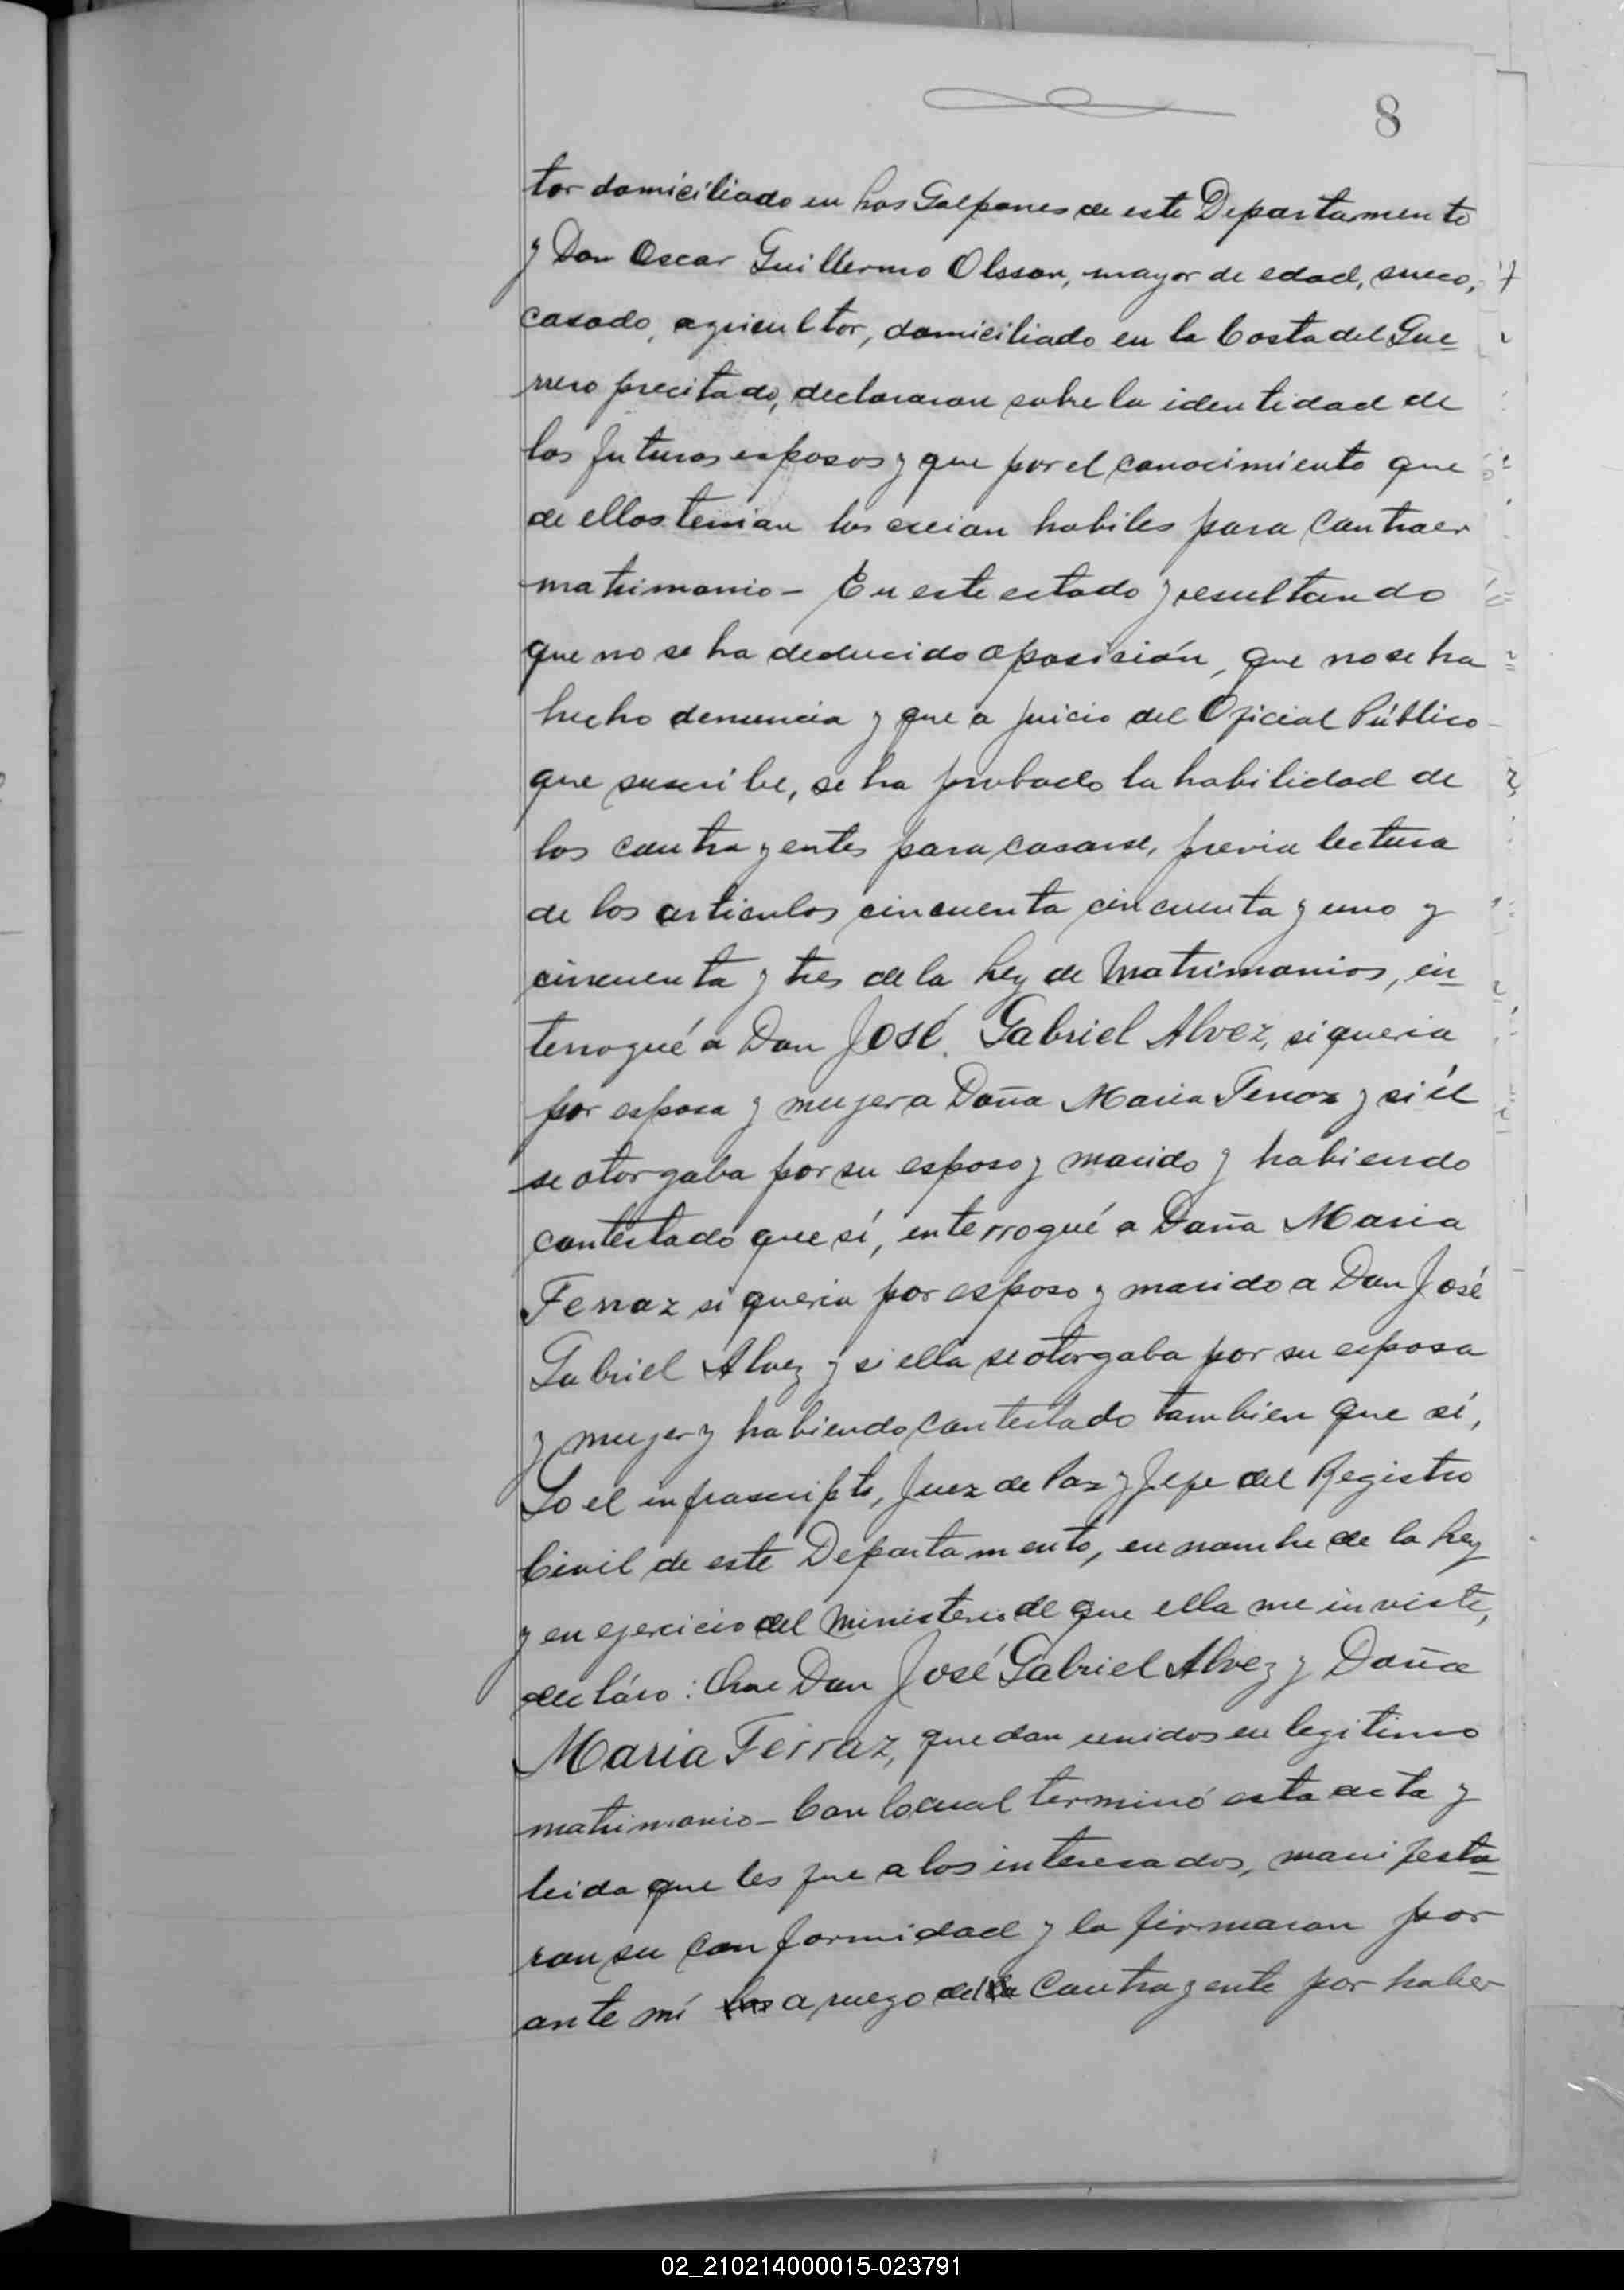 8
tor domiciliado en Los Galpones de este Departamento
y Don Oscar Guillermo Olsson, mayor de edad, sueco,
casado, agricultor, domiciliado en la Costa del Gue=
rrero precitado, declararon sobre la identidad de
los futuros esposos y que por el conocimiento que
de ellos tenian los creian habiles para contraer
matrimonio - En este estado y resultando
que no se ha deducido oposición, que no se ha
hecho denuncia y que a juicio del Oficial Público
que suscribe, se ha probado la habilidad de
los contrayentes para casarse, previa lectura
de los articulos cincuenta cincuenta y uno y
cincuenta y tres de la Ley de Matrimonios, in=
terrogué a Don José Gabriel Alvez, si queria
por esposa y mujer a Doña Maria Ferraz y si él
se otorgaba por su esposo y marido y habiendo
contestado que sí, interrogué a Doña Maria
Ferraz si queria por esposo y marido a Don José
Gabriel Alvez y si ella se otorgaba por su esposa
y mujer y habiendo contestado tambien que sí,
Yo el infrascripto, Juez de Paz y Jefe del Registro
Civil de este Departamento, en nombre de la Ley
y en ejercicio del Ministerio de que ella me inviste,
decláro: Que Don José Gabriel Alvez y Doña
Maria Ferraz, quedan unidos en legitimo
matrimonio - Con lo cual terminó esta acta y
leida que les fue a los interesados, manifesta=
ron su conformidad y la firmaron por
ante mí a ruego de la Contrayente por haber
02_210214000015-023791